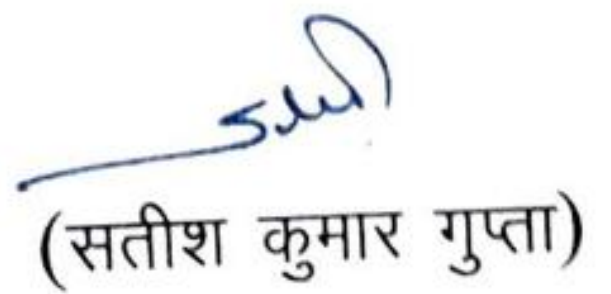 (सतीश कुमार गुप्ता)